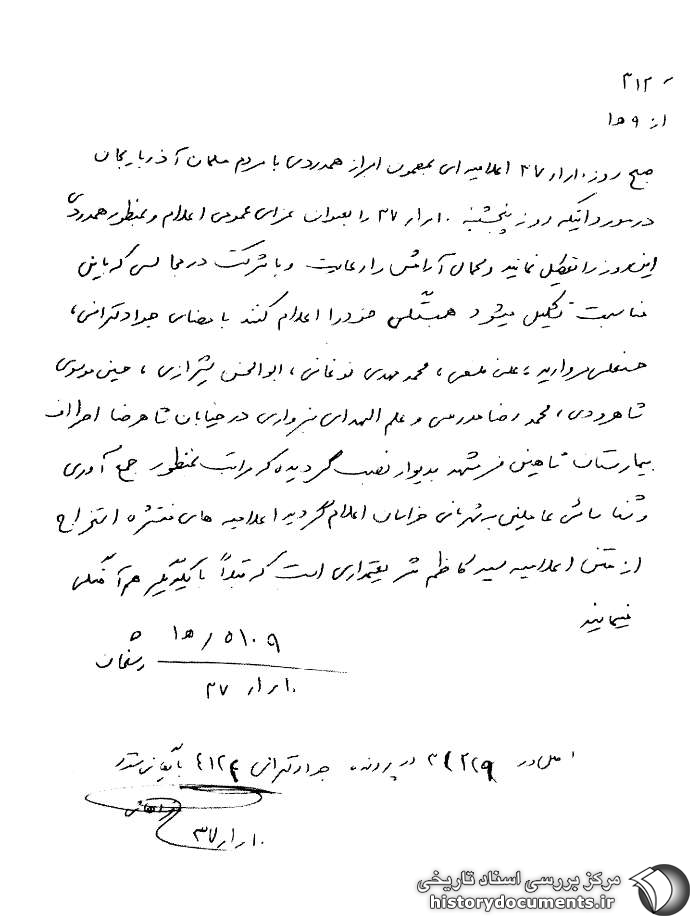 ۳۱۲
از ۹ ه‍ ۱
صبح روز ۱۰/۱/۳۷ اعلامیه ای بمضمون ابراز همدردی با مردم مسلمان آذربایجان
در مورد اینکه روز پنجشنبه ۱۰/۱/۳۷ را بعنوان عزای عمومی اعلام و بمنظور همدردی
این روز را تعطیل نمایند و کمال آرامش را رعایت و با شرکت در مجالسی که باین
مناسبت تشکیل میشود همبستگی خود را اعلام کنند با امضای جواد تهرانی،
حسنعلی مروارید، علی فلسفی، محمد مهدی نوغانی، ابوالحسن شیرازی، حسین موسوی
شاهرودی، محمد رضا مدرسی و علم الهدای سبزواری در خیابان شاهرضا اطراف
بیمارستان شاهین فر مشهد بدیوار نصب گردیده که مراتب بمنظور جمع آوری
و شناسائی عاملین به شهربانی خراسان اعلام گردید اعلامیه های منتشره استخراج
از متن اعلامیه سید کاظم شریعتمداری است که قبلاً با یکدیگر هم آهنگی
مینمایند
۵۱۰۹ / ه‍ ۱
۱۰/۱/۳۷
اصل در ۳۱۲۲۹ در پرونده جواد تهرانی ۴۱۲۴ بایگانی شود
۱۰/۱/۳۷
مرکز بررسی اسناد تاریخی
historydocuments.ir